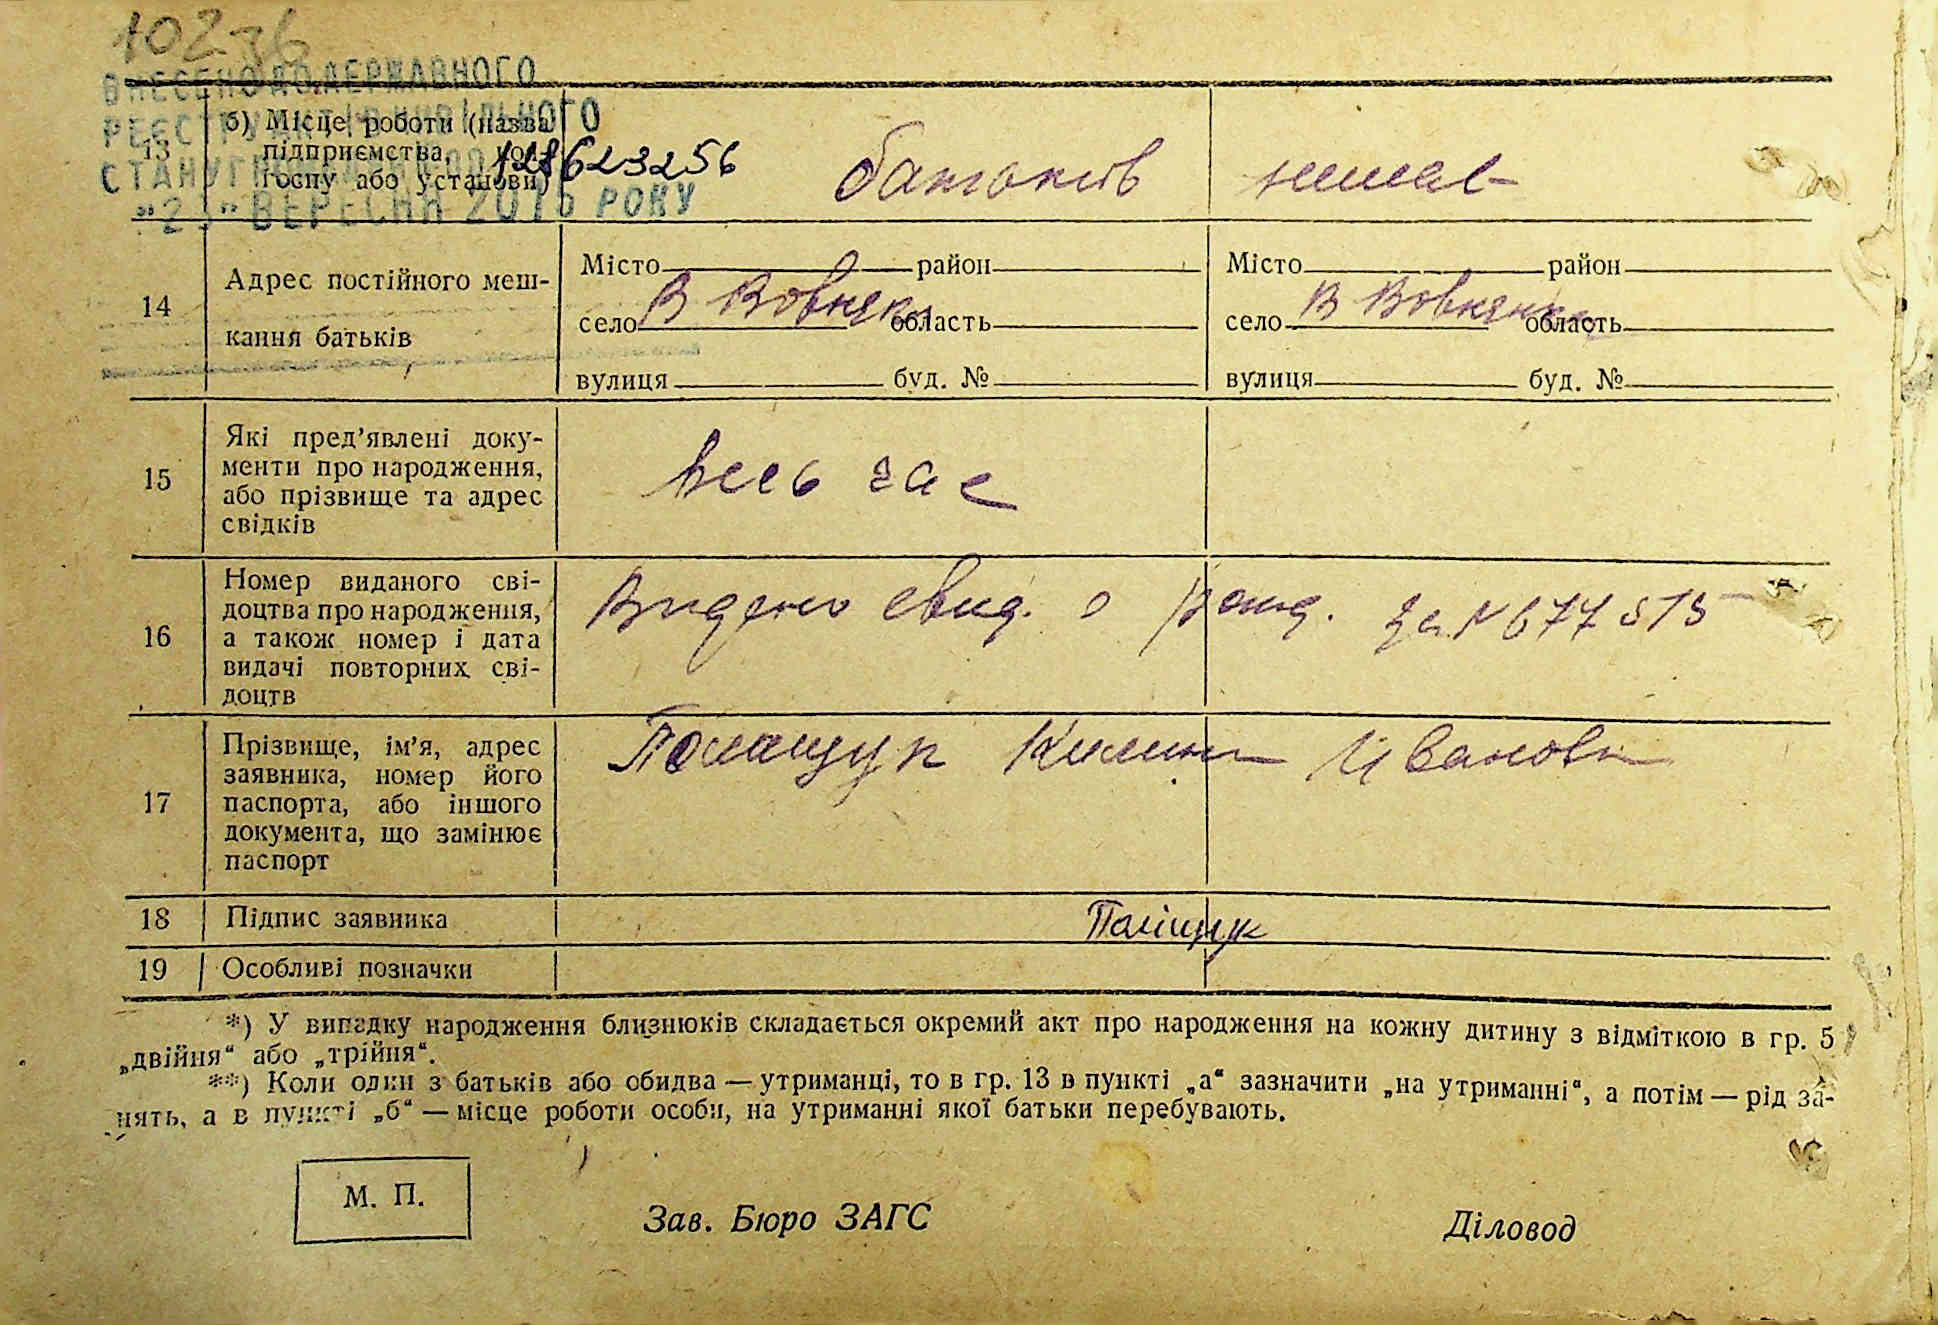 10236
ВНЕСЕНО ДО ДЕРЖАВНОГО
РЕЄСТРУ АКТІВ ЦИВІЛЬНОГО
СТАНУ
128623256
ВЕРЕСНЯ РОКУ
13 б) Місце роботи (назва
підприємства, кол-
госпу або установи)
14 Адрес постійного меш-
кання батьків
Місто район Місто район
село В Вовнянка область село В Вовнянка область
вулиця буд. № вулиця буд. №
15 Які пред’явлені доку-
менти про народження,
або прізвище та адрес
свідків
16 Номер виданого сві-
доцтва про народження,
а також номер і дата
видачі повторних сві-
доцтв
свид. о рожд. за N 677515
17 Прізвище, ім’я, адрес
заявника, номер його
паспорта, або іншого
документа, що замінює
паспорт
18 Підпис заявника Поліщук
19 Особливі позначки
*) У випадку народження близнюків складається окремий акт про народження на кожну дитину з відміткою в гр. 5
„двійня“ або „трійня“.
**) Коли один з батьків або обидва — утриманці, то в гр. 13 в пункті „а“ зазначити „на утриманні“, а потім — рід за-
нять, а в пункті „б“ — місце роботи особи, на утриманні якої батьки перебувають.
М. П.
Зав. Бюро ЗАГС Діловод